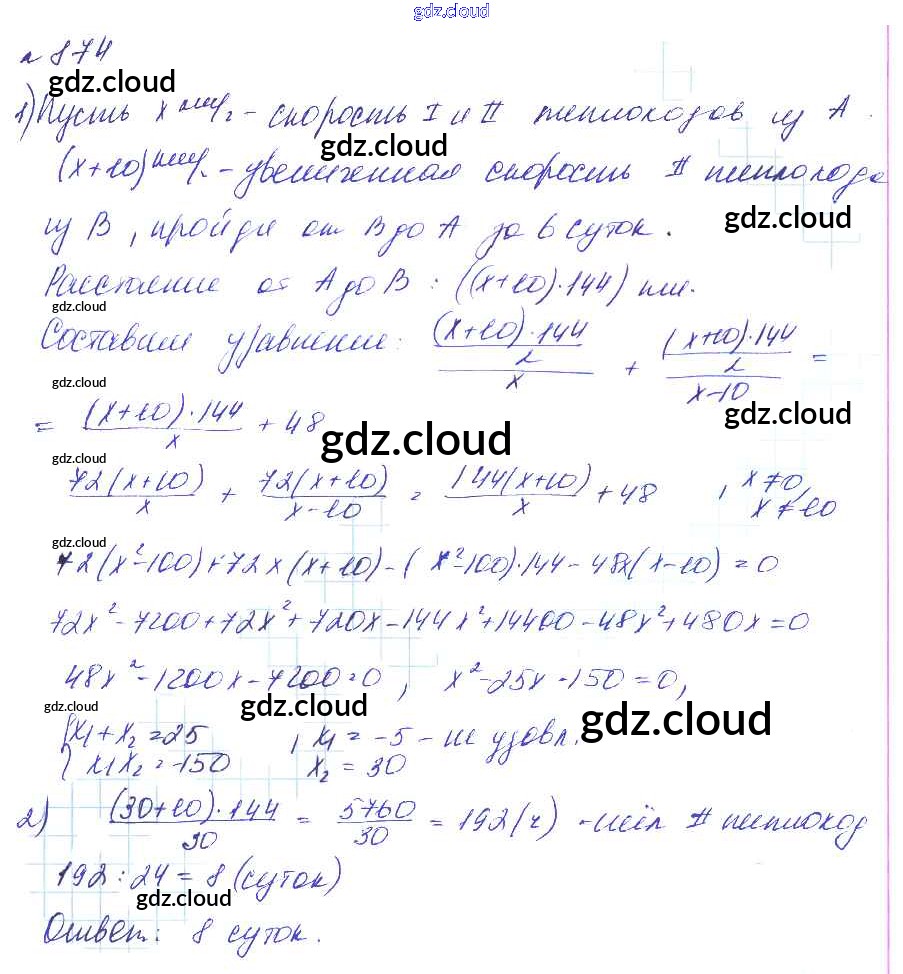 gdz.cloud
№ 874
gdz.cloud
1) Пусть x км/ч - скорость I и II теплоходов из A.
gdz.cloud
(x+10) км/ч - увеличенная скорость II теплохода
gdz.cloud
из B, пройдя от B до A за 6 суток.
Расстояние от A до B: ((x+10)·144) км.
gdz.cloud
Составим уравнение: ((x+10)·144/2)/x + ((x+10)·144/2)/(x-10) =
gdz.cloud gdz.cloud
= (x+10)·144/x + 48
gdz.cloud
gdz.cloud
72(x+10)/x + 72(x+10)/(x-10) = 144(x+10)/x + 48 , x≠0, x≠10
gdz.cloud
72(x²-100)+72x(x+10)-(x²-100)·144-48x(x-10)=0
72x²-7200+72x²+720x-144x²+14400-48x²+480x=0
48x²-1200x-7200=0, x²-25x-150=0,
gdz.cloud gdz.cloud gdz.cloud
{x₁+x₂=25 , x₁=-5 - не удовл.
{x₁x₂=-150 x₂=30
2) (30+10)·144/30 = 5760/30 = 192(ч) - шёл II теплоход
192:24=8 (суток)
gdz.cloud
gdz.cloud
Ответ: 8 суток.